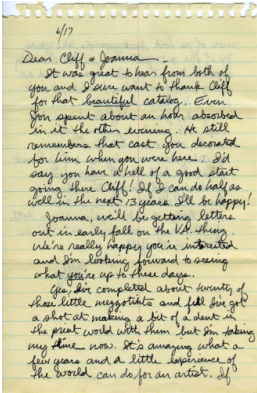 6/17
Dear Cliff & Joanna —
It was great to hear from both of
you and I sure want to thank Cliff
for that beautiful catalog. Even
Jon spent about an hour absorbed
in it the other evening. He still
remembers that cast you decorated
for him when you were here. I'd
say you have a hell of a good start
going there Cliff! If I can do half as
well in the next 13 years I'll be happy!
Joanna, we'll be getting letters
out in early fall on the VA thing.
We're really happy you're interested
and I'm looking forward to seeing
what you're up to these days.
Yes, I've completed about twenty of
those little mezzotints and feel I've got
a shot at making a bit of a dent in
the print world with them, but I'm taking
my time now. It's amazing what a
few years and a little experience of
the world can do for an artist. If